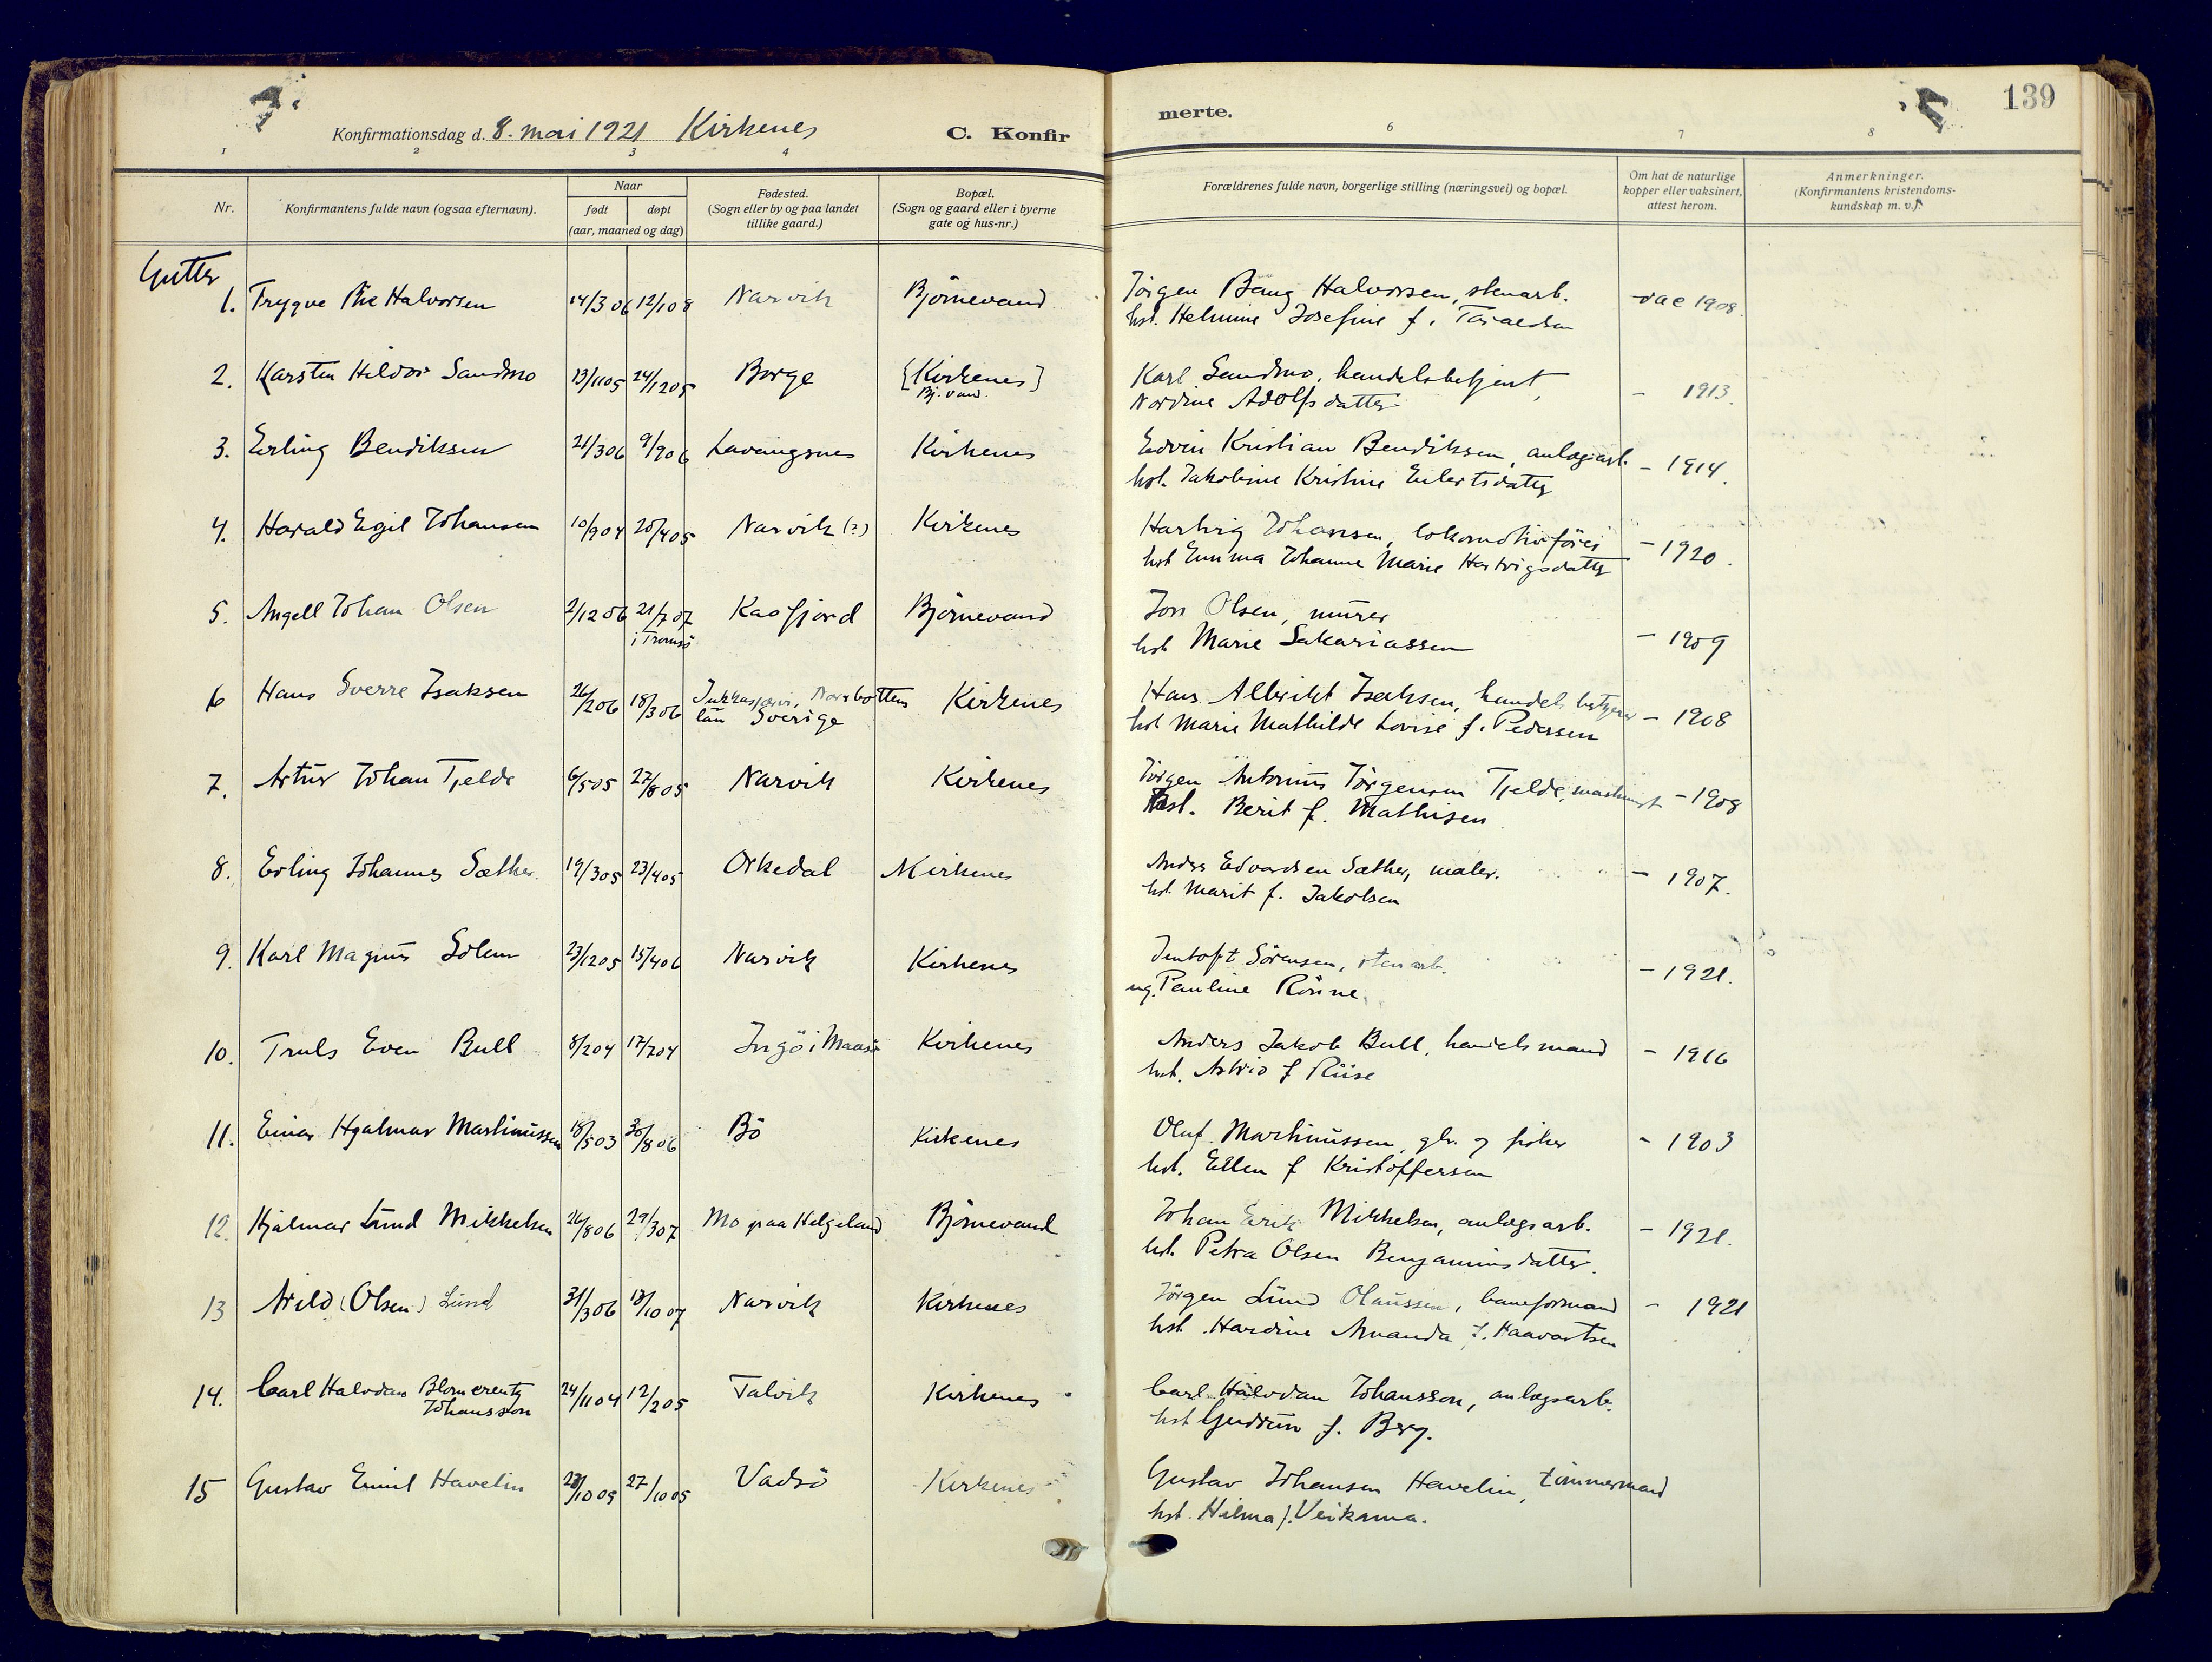 139
Konfirmationsdag d. 8. mai 1921 Kirkenes C. Konfir merte.
1 2 3 4 6 7 8
Nr. Konfirmantens fulde navn (ogsaa efternavn). Naar født døpt (aar, maaned og dag) Fødested. (Sogn eller by og paa landet tillike gaard.) Bopæl. (Sogn og gaard eller i byerne gate og hus-nr.) Forældrenes fulde navn, borgerlige stilling (næringsvei) og bopæl. Om hat de naturlige kopper eller vaksinert, attest herom. Anmerkninger. (Konfirmantens kristendoms-kundskap m. v.).
Gutter
1. Trygve Halvorsen 14/3 06 12/1 08 Narvik Björnevand Jörgen Bang Halvorsen, stenarb. vac 1908.
hst. Helmine Josefine f.
2. Karsten Hildor Sandmo 13/11 05 24/12 05 Borge {Kirkenes} Karl Sandmo, handelsbetjent, - 1913.
Bj. vand. Nordine Adolfsdatter
3. Erling Bendiksen 21/3 06 9/9 06 Lavangsnes Kirkenes Edvin Kristian Bendiksen, anlægsarb. - 1914.
hst. Jakobine Kristine Eilertsdatter
4. Harald Egil Johansen 10/9 04 20/4 05 Narvik (?) Kirkenes Hartvig Johansen, lokomotivförer - 1920.
hst Emma Johanne Marie Hartvigsdatter
5. Angell Johan Olsen 2/12 06 21/7 07 Kaafjord Björnevand Jon Olsen, murer - 1909
i Tromsö hst Marie Sakariassen
6 Hans Sverre Isaksen 26/2 06 18/3 06 Jukkasjærvi, Norrbottens Kirkenes Hans Albrikt Isaksen, handelsbetjent - 1908
län Sverige hst Marie Mathilde Lovise f. Pedersen
7. Artur Johan Tjelde 6/5 05 27/8 05 Narvik Kirkenes Jörgen Antonius Jörgensen Tjelde, maskinist - 1908
hst. Berit f. Mathisen
8. Erling Johannes Sæther 19/3 05 23/4 05 Orkedal Kirkenes Anders Edvardsen Sæther, maler. - 1907.
hst. Marit f. Jakobsen
9. Karl Magnus Solem 23/12 05 15/4 06 Narvik Kirkenes Jentoft Sörensen, stenarb. - 1921.
ug. Pauline Rönne
10. Truls Even Bull 8/2 04 17/7 04 Ingö i Maasö Kirkenes Anders Jakob Bull, handelsmand - 1916
hst. Astrid f Riise
11. Einar Hjalmar Martinussen 18/5 03 30/8 06 Bö Kirkenes Oluf Martinussen, gbr. og fisker - 1903
hst. Ellen f Kristoffersen
12. Hjalmar Lund Mikkelsen 26/8 06 29/3 07 Mo paa Helgeland Björnevand Johan Erik Mikkelsen, anlægsarb. - 1921.
hst. Petra Olsen Benjaminsdatter.
13 Arild (Olsen) Lund 31/3 06 13/10 07 Narvik Kirkenes Jörgen Lund Olaussen, baneformand - 1921
hst. Hardine Amanda f. Haavartsen
14. Carl Halvdan Blomcrentz 24/11 04 12/2 05 Talvik Kirkenes Carl Halvdan Johansson, anlægsarb.
Johansson hst Gudrun f. Berg.
15 Gustav Emil Havelin 10 05 27/10 05 Vadsö Kirkenes Gustav Johansen Havelin, tømmermand
hst. Hilma f.